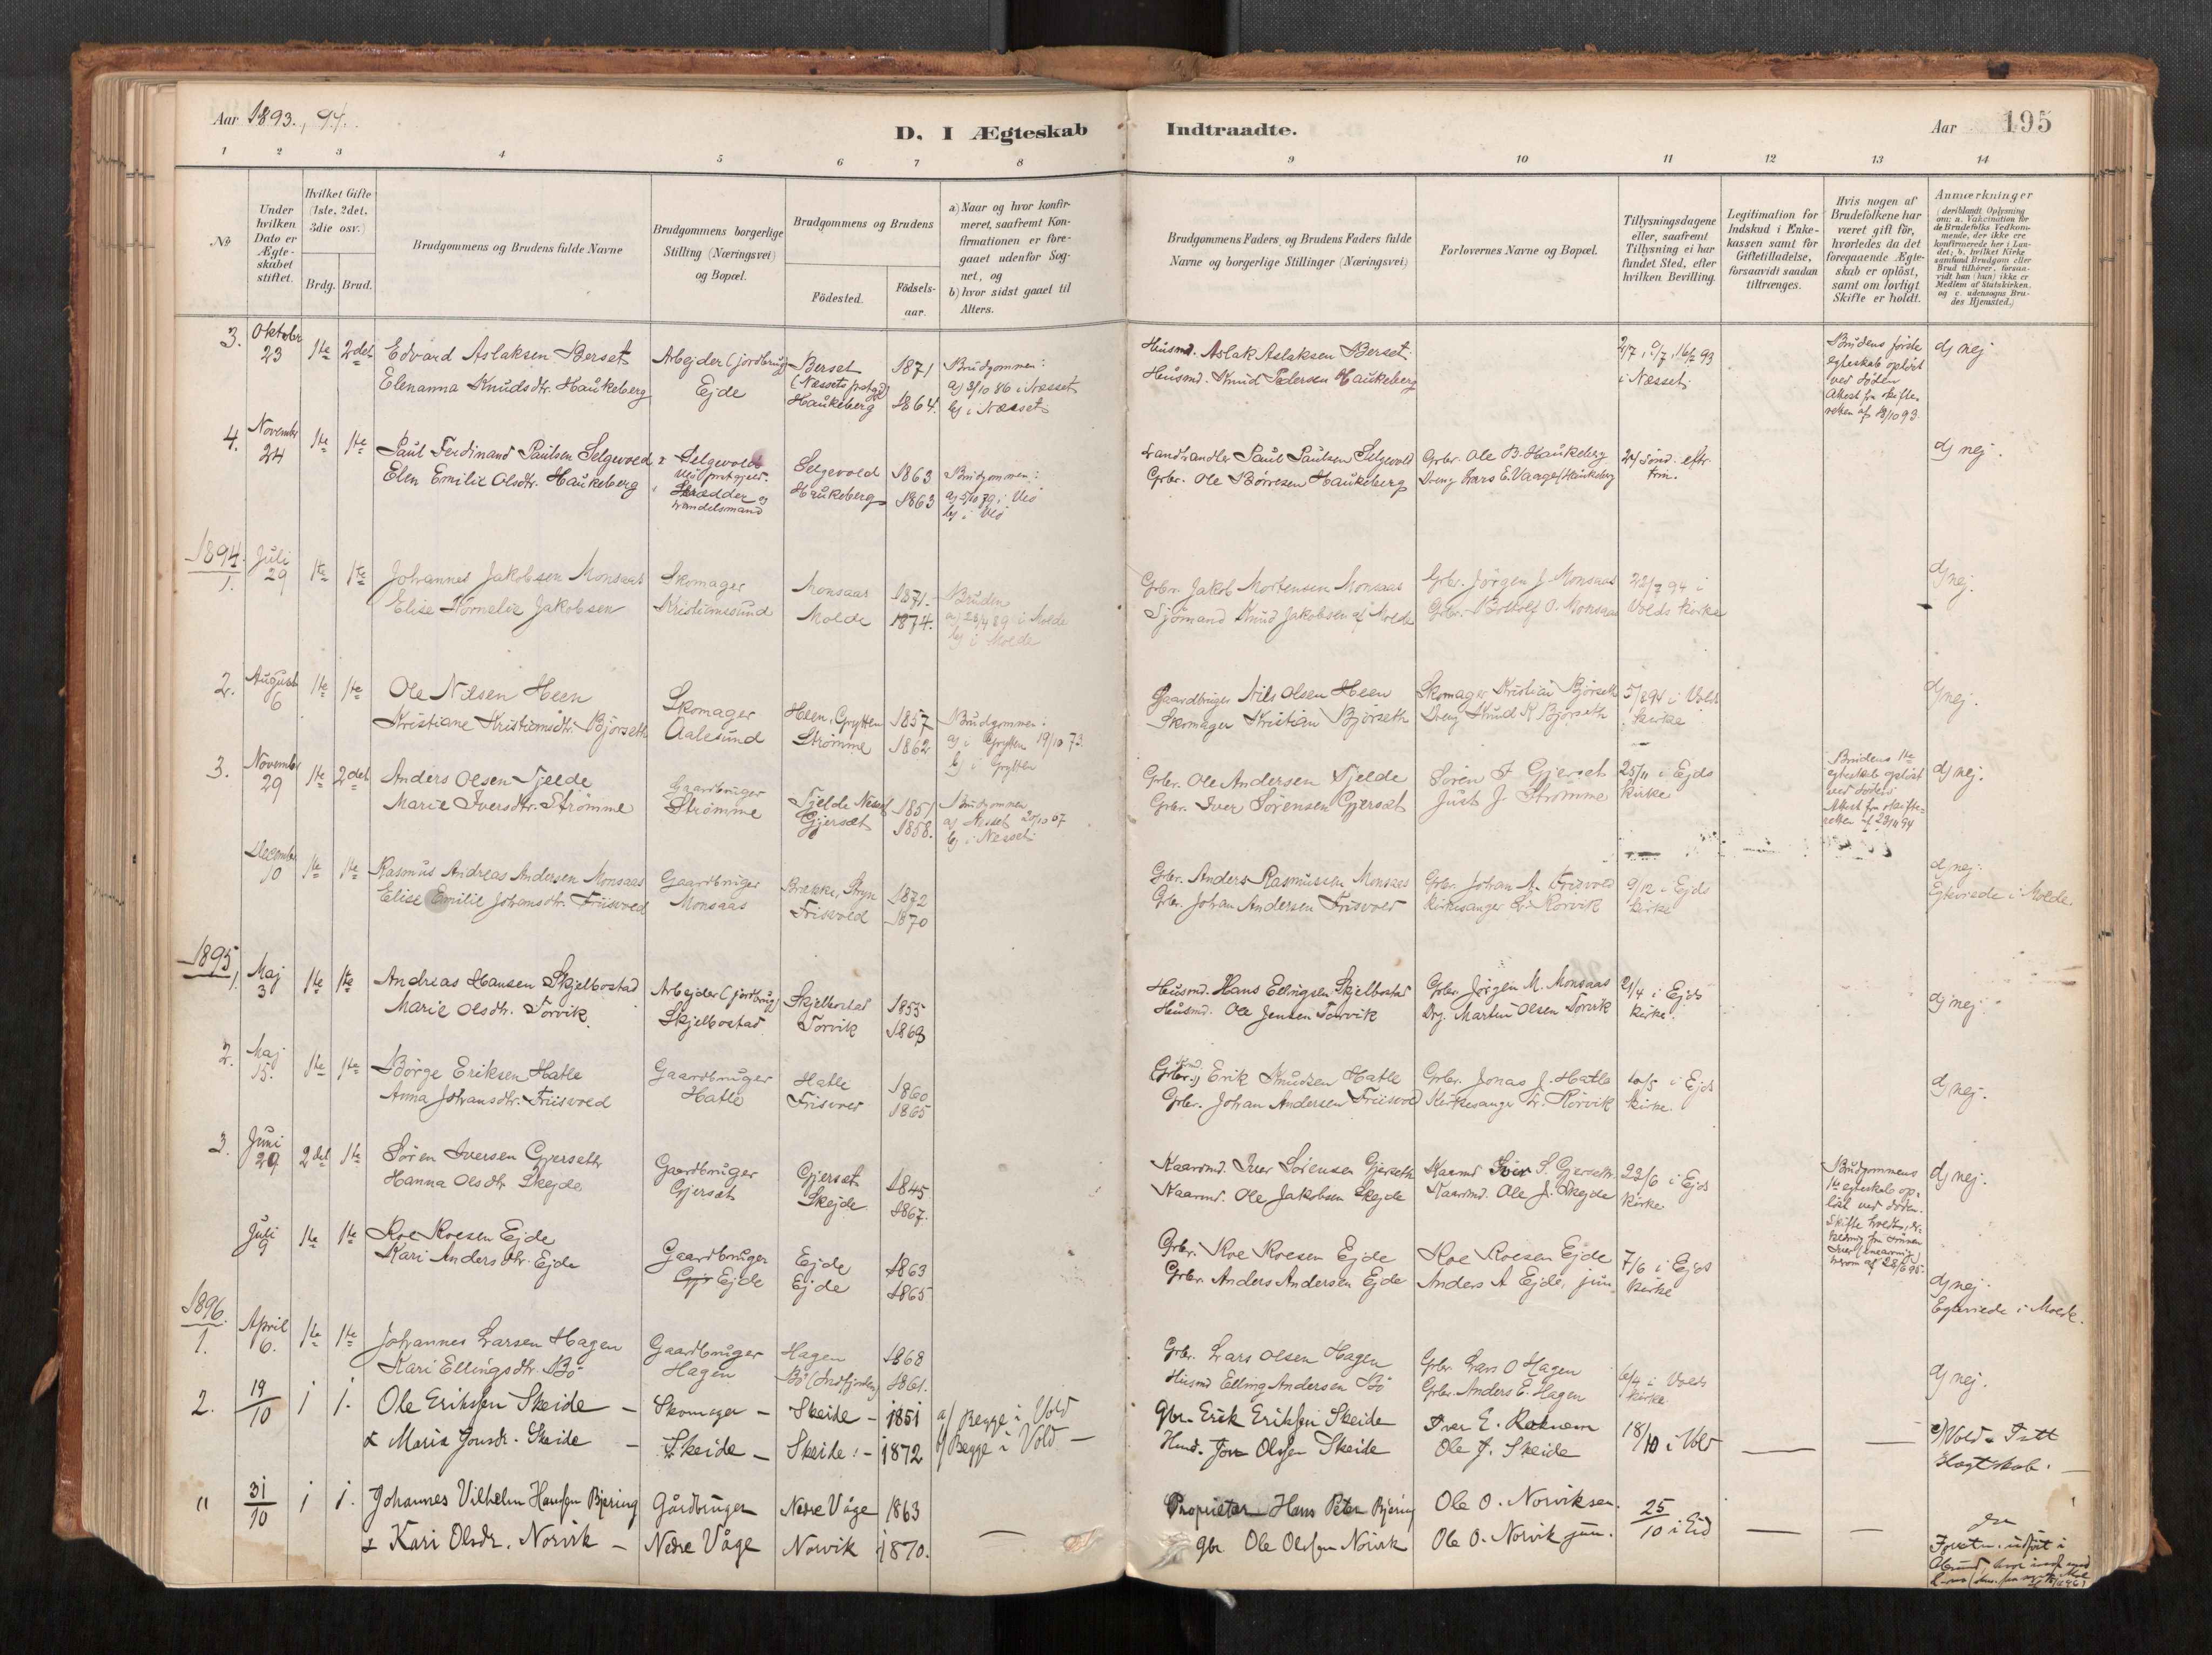 Aar 1893., 94.
D. I Ægteskab Indtraadte.
Aar 195
1 2 3 4 5 6 7 8 9 10 11 12 13 14
№
Under hvilken Dato er Ægteskabet stiftet.
Hvilket Gifte (1ste, 2det, 3die osv.)
Brdg. Brud.
Brudgommens og Brudens fulde Navne
Brudgommens borgerlige Stilling (Næringsvei) og Bopæl.
Brudgommens og Brudens
Födested.
Födsels-aar.
a) Naar og hvor konfirmeret, saafremt Konfirmationen er foregaaet udenfor Sognet, og
b) hvor sidst gaaet til Alters.
Brudgommens Faders og Brudens Faders fulde Navne og borgerlige Stillinger (Næringsvei)
Forlovernes Navne og Bopæl.
Tillysningsdagene eller, saafremt Tillysning ei har fundet Sted, efter hvilken Bevilling.
Legitimation for Indskud i Enkekassen samt for Giftetilladelse, forsaavidt saadan tiltrænges.
Hvis nogen af Brudefolkene har været gift för, hvorledes da det foregaaende Ægteskab er oplöst, samt om lovligt Skifte er holdt.
Anmærkninger
(deriblandt Oplysning om: a. Vakcination for de Brudefolks Vedkommende, der ikke ere konfirmerede her i Landet; b. hvilket Kirkesamfund Brudgom eller Brud tilhörer, forsaavidt han (hun) ikke er Medlem af Statskirken. og c. udensogns Brudes Hjemsted.)
3. Oktober 23 1te 2det Edvard Aslaksen Berset Arbejder (jordbrug) Berset 1871 Brudgommen: Husmd. Aslak Aslaksen Berset 2/7, 9/7, 16/7 93 Brudens første d) nej
Elenanna Knudsdtr. Haukeberg Ejde (Næssets prstgjd) Haukeberg 1864. a) 3/10 86 i Næsset b) i Næsset Husmd. Knud Pedersen Haukeberg i Næsset. egteskab opløst ved døden Attest fra skifteretten af 18/10 93.
4. November 24 1te 1te Paul Ferdinand Paulsen Selgevold Selgevold Veø prstgjeld. Selgevold 1863 Brudgommen: Landhandler Paul Paulsen Selgevold Grbr. Ole B. Haukeberg 24 sönd. eftr. d) nej.
Elen Emilie Olsdtr. Haukeberg Skrædder og handelsmand Haukeberg 1863 a) 5/10 79 i Veø b) i Veø Grbr. Ole Børresen Haukeberg Dreng Lars E. Vaage/Haukeberg trin.
1894.
1. Juli 29 1te 1te Johannes Jakobsen Monsaas Skomager Monsaas 1871. Bruden Grbr. Jakob Mortensen Monsaas Grbr. Jörgen J. Monsaas 22/7 94 i d) nej.
Elise Kornelie Jakobsen Kristianssund Molde 1874. a) 28/4 89 i Molde b) i Molde Sjömand Knud Jakobsen af Molde Grbr. Bottolf O. Monsaas Volds kirke
2. August 6 1te 1te Ole Nilsen Heen Skomager Heen, Grytten 1857 Brudgommen: Gaardbruger Nils Olsen Heen Skomager Kristian Bjørseth 5/8 94 i Vold d) nej.
Kristiane Kristiansdtr. Bjørseth Aalesund Strømme 1862 a) i Grytten 19/10 73. b) i Grytten Skomager Kristian Bjørseth Dreng Knud K Bjørseth kirke
3. November 29 1te 2det Anders Olsen Tjelde Gaardbruger Tjelde Nesset 1851 Brudgommen Grbr. Ole Andersen Tjelde Søren I Gjerset 25/11 i Ejds Brudens 1te d) nej.
Marie Iversdtr. Strømme Strømme Gjersæt 1858. a) Nesset 20/10 67 b) i Nesset Grbr. Iver Sørensen Gjersæt Just J. Strømme kirke egteskab opløst ved døden Attest fra skifteretten af 28/11 94
December 10 1te 1te Rasmus Andreas Andersen Monsaas Gaardbruger Brække, Stryn 1872 Grbr. Anders Rasmussen Monsaas Grbr. Johan A. Friisvold 9/12 i Ejds d) nej.
Elise Emilie Johansdtr. Friisvold Monsaas Frisvold 1870 Grbr. Johan Andersen Frisvold Kirkesanger L. Rörvik kirke Egteviede i Molde.
1895.
1. Maj 3 1te 1te Andreas Hansen Skjelbostad Arbejder (jordbrug) Skjelbostad 1855 Husmd. Hans Ellingsen Skjelbostad Grbr. Jørgen M. Monsaas 21/4 i Ejds d) nej.
Marie Olsdtr. Torvik Skjelbostad Torvik 1863 Husmd. Ole Jensen Torvik Drg. Martin Olsen Torvik kirke.
2. Maj 15. 1te 1te Børge Eriksen Hatle Gaardbruger Hatle 1860 Grbr. Erik Knudsen Hatle Grbr. Jonas J. Hatle 10/5 i Ejds d) nej.
Anna Johansdtr. Friisvold Hatle Frisvold 1865 Grbr. Johan Andersen Friisvold Kirkesanger L. Rörvik kirke.
3. Juni 29 2det 1te Søren Iversen Gjerseth Gaardbruger Gjersæt 1845 Kaarmd. Iver Sørensen Gjerseth Kaarmd Iver S. Gjerseth 23/6 i Ejds Brudgommens d) nej.
Hanna Olsdtr Skejde Gjersæt Skejde 1867. Kaarmd. Ole Jakobsen Skejde Kaarmd. Ole J. Skejde kirke 1te egteskab opløst ved døden. Skifte holdt,
Juli 9 1te 1te Roe Roesen Ejde Gaardbruger Ejde 1863 Grbr. Roe Roesen Ejde Roe Roesen Ejde 7/6 i Ejds d) nej
Kari Andersdtr. Ejde Ejde Ejde 1865 Grbr. Anders Andersen Ejde Anders A Ejde, jun. kirke Egteviede i Molde.
1896.
1. April 6. 1te 1te Johannes Larsen Hagen Gaardbruger Hagen 1868 Grbr. Lars Olsen Hagen Grbr Lars O Hagen 6/4 i Volds d) nej.
Kari Ellingsdtr. Bö Hagen Bö (Indfjorden) 1861. Husmd Elling Andersen Bö Grbr. Anders E. Hagen kirke
2. 19/10 1 1. Ole Erikssen Skeide – Skomager – Skeide – 1851 a/ Begge i Vold Gbr. Erik Eriksen Skeide Iver E. Roknem 18/10 i Vold
& Maria Jonsdr. Skeide – Skeide – Skeide – 1872 b/ Begge i Vold – Husmd. Jon Olssen Skeide Ole J. Skeide
" 31/10 1 1. Johannes Vilhelm Hansen Bjering Gårdbruger Nedre Våge 1863 Proprietær Hans Peter Bjering Ole O. Norviksen. 25/10 i Eid
& Kari Olsdr. Norvik – Nedre Våge Norvik 1870. – gbr Ole Olssen Norvik Ole O. Norvik jun.